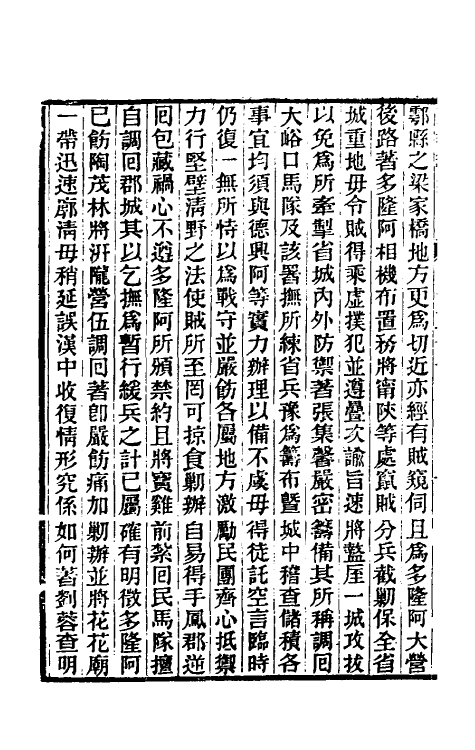 鄠縣之梁家橋地方更爲切近亦經有賊窺伺且爲多隆阿大營
後路著多隆阿相機布置務將甯陝等處竄賊分兵截勦保全省
城重地毋令賊得乘虛撲犯並遵疊次諭旨速將盩厔一城攻拔
以免爲所牽掣省城內外防禦著張集馨嚴密籌備其所稱調回
大峪口馬隊及該署撫所練省兵豫爲籌布曁城中稽查儲積各
事宜均須與德興阿等實力辦理以備不虞毋得徒託空言臨時
仍復一無所恃以爲戰守並嚴飭各屬地方激勵民團齊心抵禦
力行堅壁清野之法使賊所至罔可掠食勦辦自易得手鳳郡逆
回包藏禍心不遵多隆阿所頒禁約且將寶雞前紮回民馬隊擅
自調回郡城其以乞撫爲暫行緩兵之計已屬確有明徵多隆阿
已飭陶茂林將汧隴營伍調回著卽嚴飭痛加勦辦並將花花廟
一帶迅速廓清毋稍延誤漢中收復情形究係如何著劉蓉查明